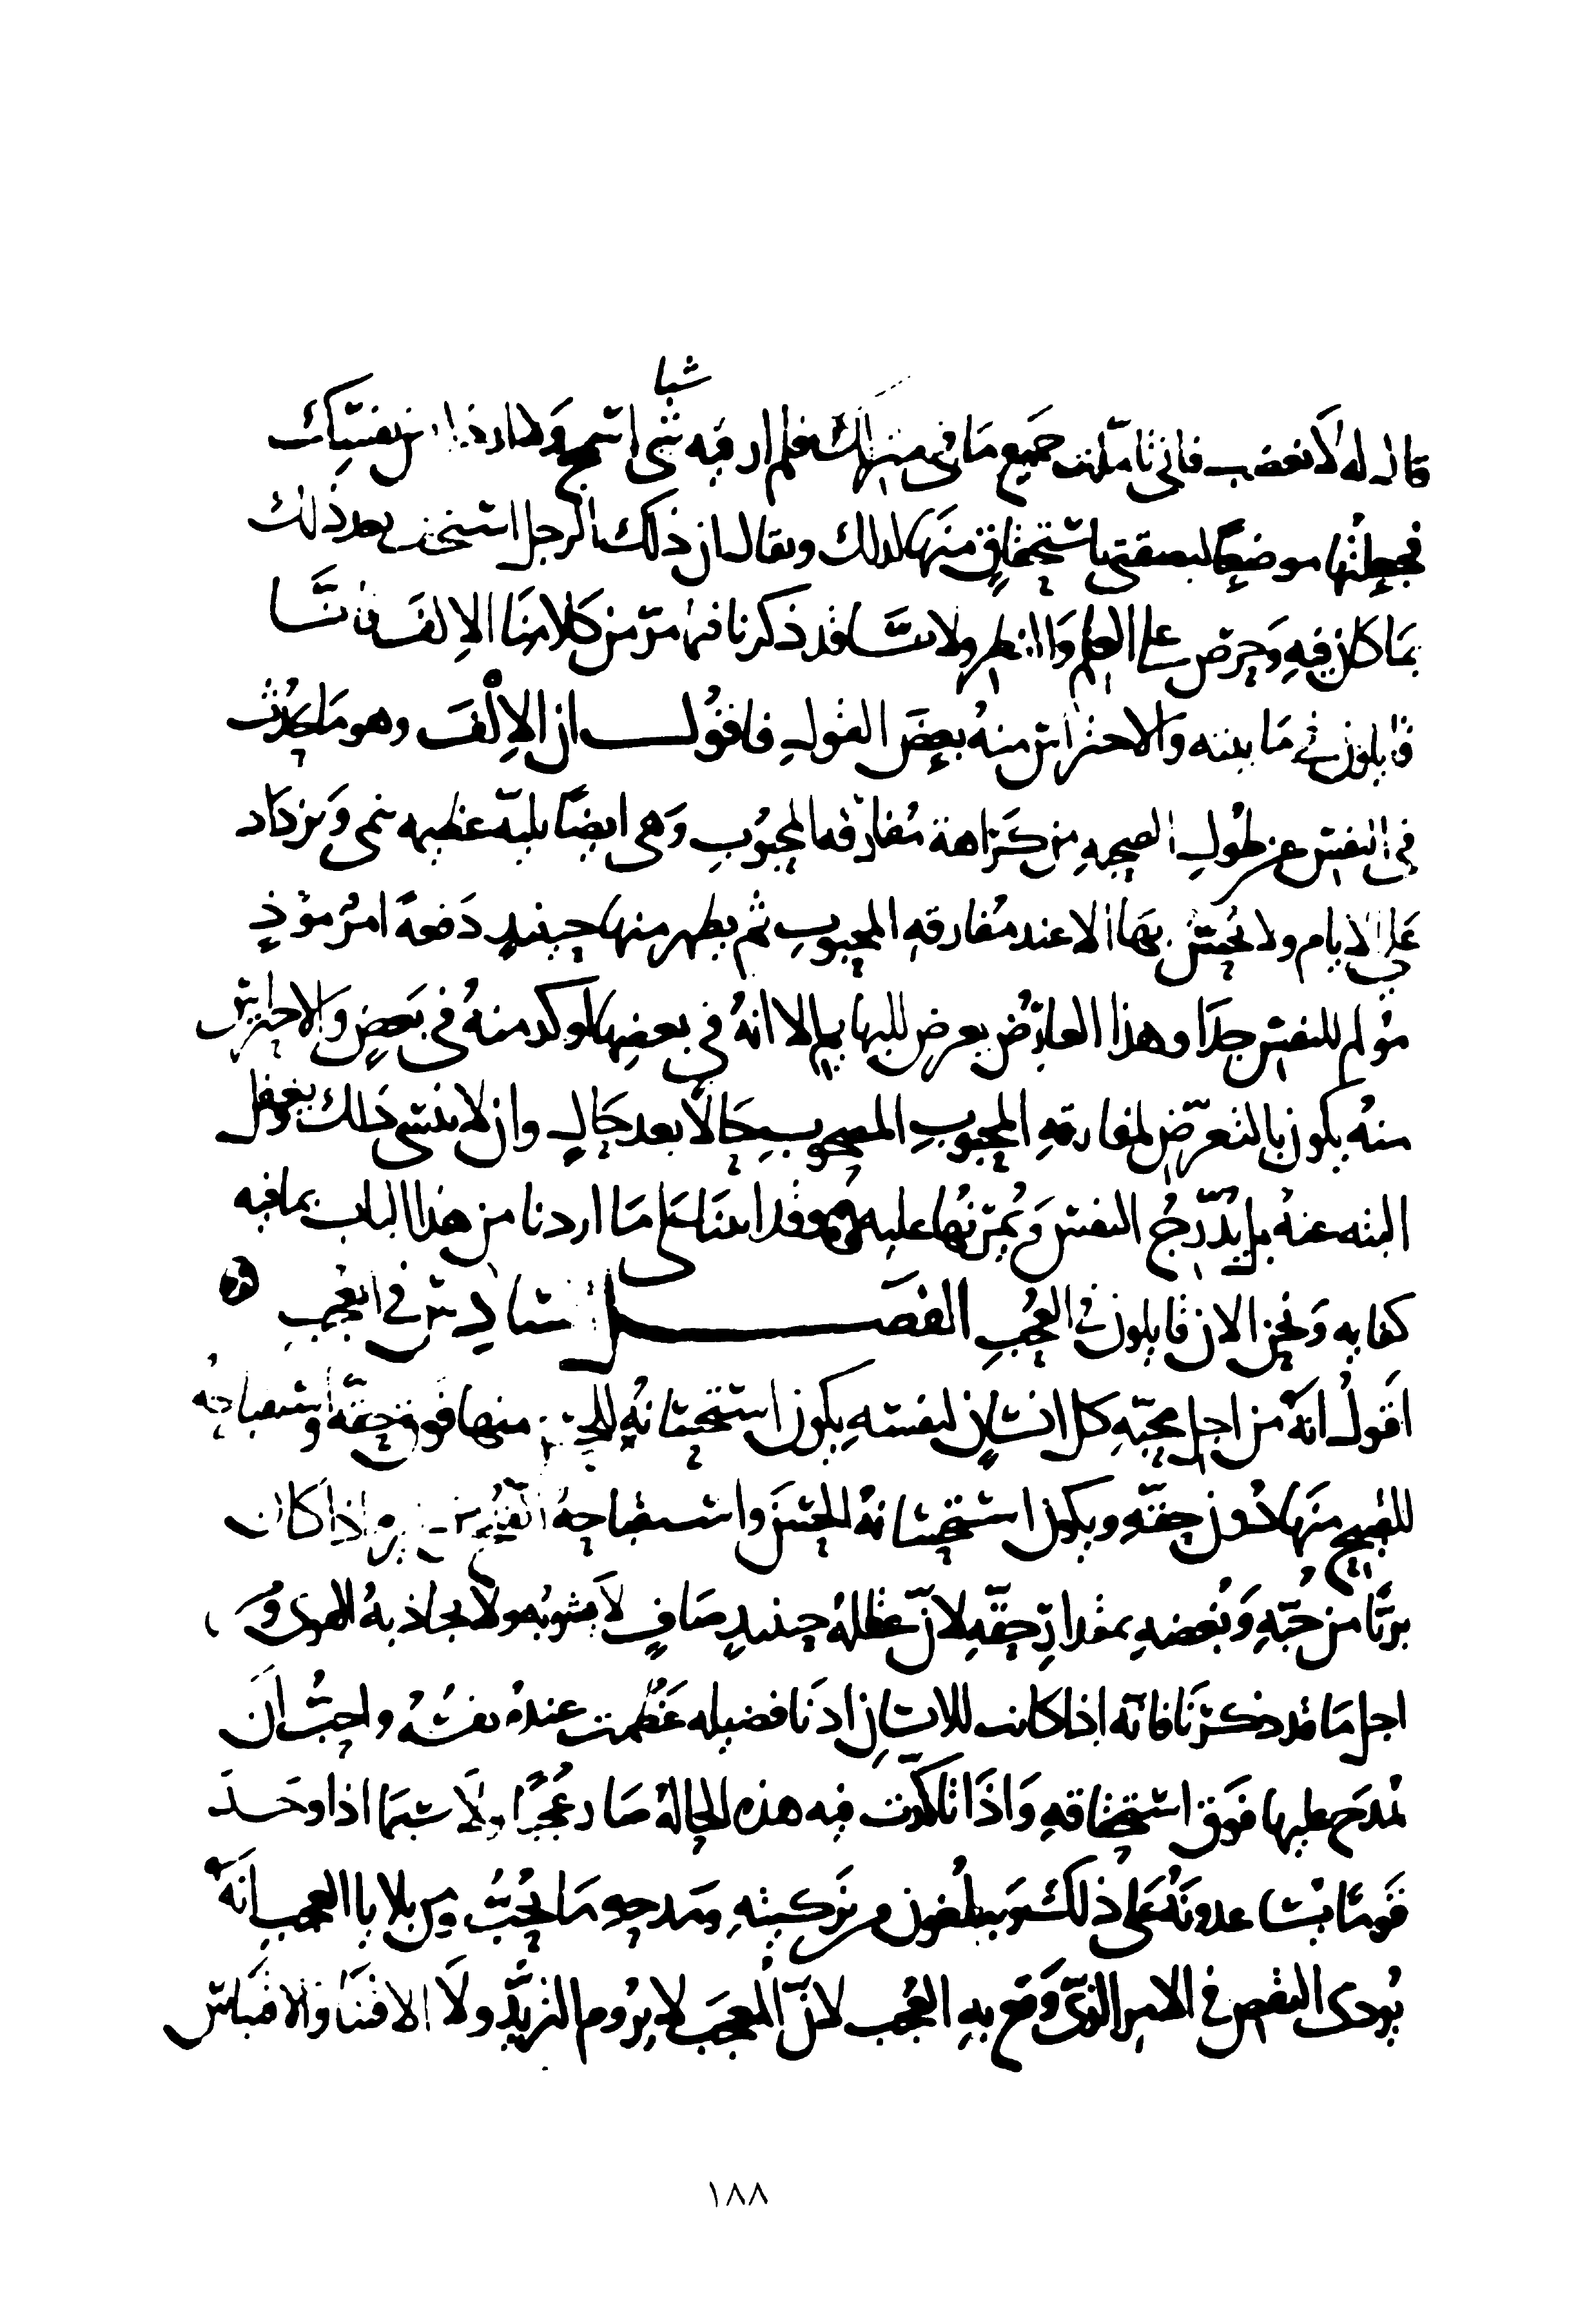 شيا
قال له لا تغضب فاني تاملت جميع ما في منزلك فلم ار فيه شي اسمج ولا ارذل من نفسك
فجعلتها موضعًا لبصقتي باستحقاقٍ منها لذلك ويقال ان ذلك الرجل استخف بعد ذلك
بما كان فيه وحرص على العلم والنظر ولانّا قد ذكرنا فيما مرّ من كلامنا الإلف فانّا
قايلون في ماييته والاحتراس منهُ بعضَ القولِ فاقول ان الإلْفَ وهو ما يحدُث
في النفس عن طُولِ الصحبهِ من كَرَاهة مُفارقه المحبُوبِ وَهى ايضًا بليّه عظيمه تنمى وَتزدَاد
على الايام ولا يُحَسّ بها الا عند مُفارقهِ المحبوبِ ثم يظهر منها حينئذٍ دَفعهً امرٌ موذٍ
مُولم للنفس جدًا وهذا العارضُ يعرض للبهايم الا انهُ في بعضها اوكد منهُ في بَعضٍ والاحتراس
منهُ يكون بالتعرّضِ لمفارقهِ المحبوبِ المصحوب حَالاً بعد حَالٍ وان لا ينسى ذلك ويغفل
البته عنهُ بل يُدّرجُ النفس وَيُمرّنُها عليه وقد اتينَا عَلى مَا اردنا من هذا الباب بما فيه
كفايه وَنحن الان قايلون في العُجبِ الفصَـل السادِس في العُجبِ
اقولُ انهُ من اجل محبّهِ كل انسانٍ لنفسهِ يكون استحسَانهُ للحسن منها فوق حقّه واستقباحهُ
للقبيح منهَا دُون حقّهِ ويكون استحسَانهُ للحسَنِ واستقباحهُ القبيح من غيره اذا كان
بريًّا من حُبّهِ وَبُغضهِ بمقدارِ حقّهِ لانّ عقلهُ حينئذٍ صَافٍ لا يشوبُه ولا يجاذبهُ الهوى وَمن
اجل مَا قد ذكرنَا فانّه اذا كانت للانسانِ ادنَا فضيله عَظُمت عندهُ نفسُهُ واحبَّ انَ
يُمدَح عليها فوق استحقاقهِ وَاذا تاكّدت فيه هذه الحالهُ صَار عُجبًا ولا سيمَا اذا وَجَدَ
قومًا يُساعدونهُ على ذلكَ ويَبلغُون من تزكيتهِ ومَدحهِ مَا يُحبّ ومن بلايا العجب انهُ
يُودى النقص في الامر الذى وَقع بهِ العُجب لانّ المعجَب لا يرُوم التزيّدِ ولا الاقتنَا والاقتباس
١٨٨